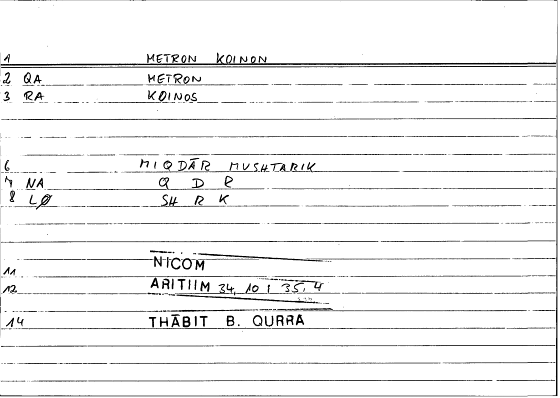 1 METRON KOINON
2 QA METRON
3 RA KOINOS
6 MIQDĀR MUSHTARIK
7 NA Q D R
8 LØ SH R K
NICOM
11
12 ARITIIM 34, 10 ; 35, 4
14 THĀBIT B. QURRA